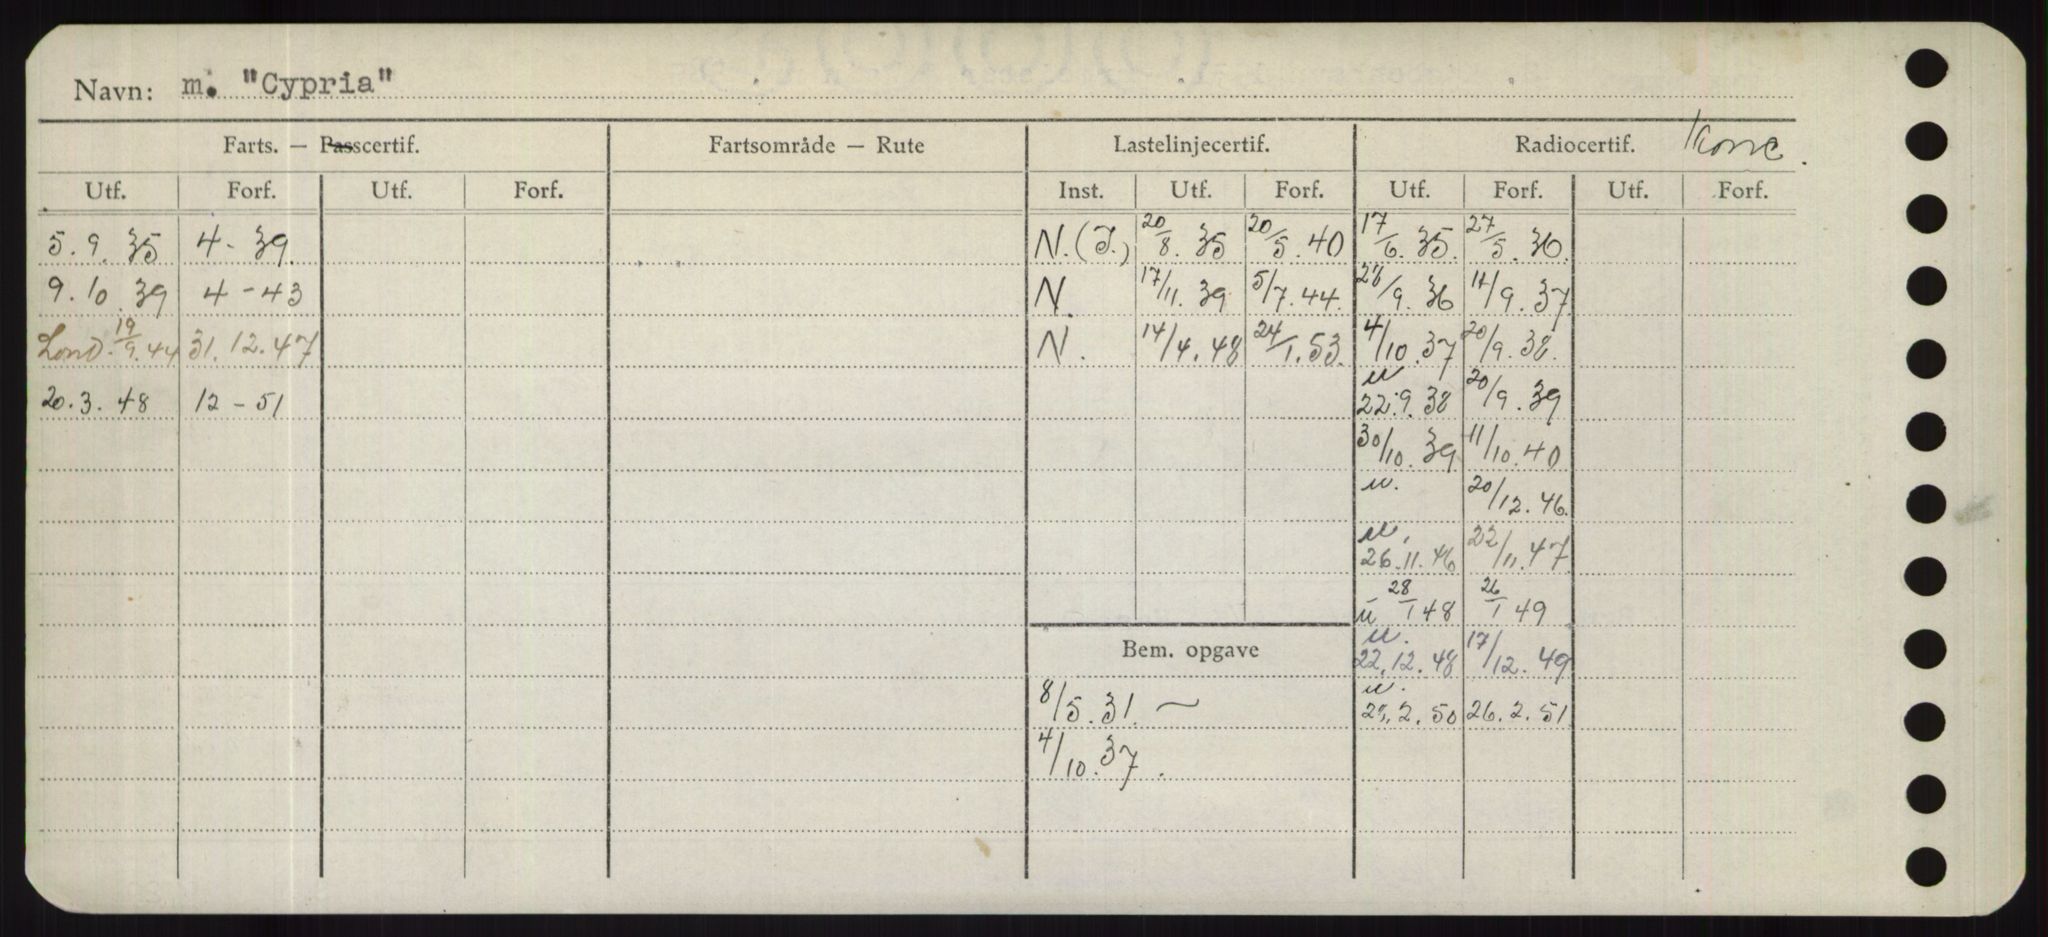 Navn: m. "Cypria"
Farts. — Passcertif. Fartsområde — Rute Lastelinjecertif. Radiocertif.
Utf. Forf. Utf. Forf. Inst. Utf. Forf. Utf. Forf. Utf. Forf.
5.9.35 4-39. N.(I.) 20/8.35 20/5.40 17/6.35. 27/5.36.
9.10.39 4-43 N. 17/11.39 5/7.44. 28/9.36 14/9.37
Lond. 19/9.44 31.12.47 N. 14/4.48 24/1.53. 4/10.37 20/9.38.
20.3.48 12-51 u 22.9.38 20/9.39
30/10.39 11/10.40
u. 20/12.46.
u. 26.11.46 22/11.47
u 28/1 48 26/1 49
Bem. opgave u. 22.12.48 17/12.49
8/5.31. ~ u. 2.50 26.2.51
4/10.37.